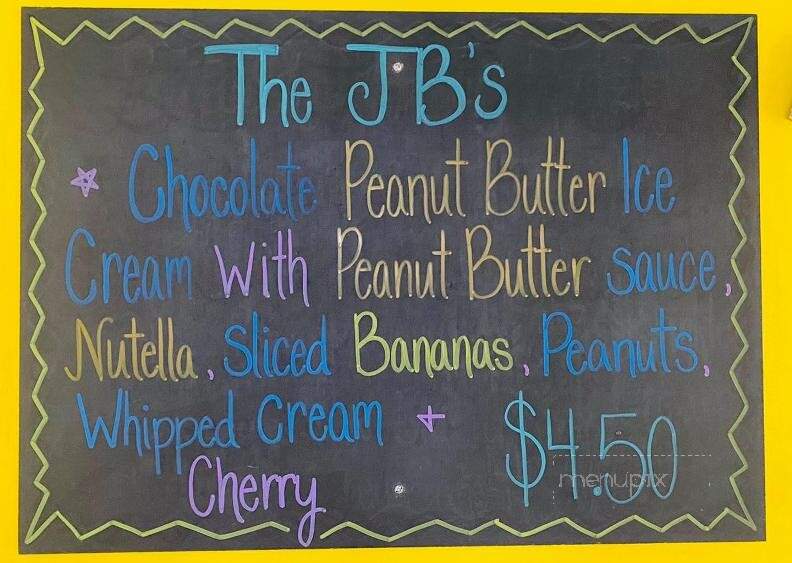 The JB's
Chocolate Peanut Butter Ice
Cream With Peanut Butter Sauce,
Nutella, Sliced Bananas, Peanuts,
Whipped Cream +
$4.50
menupix
Cherry